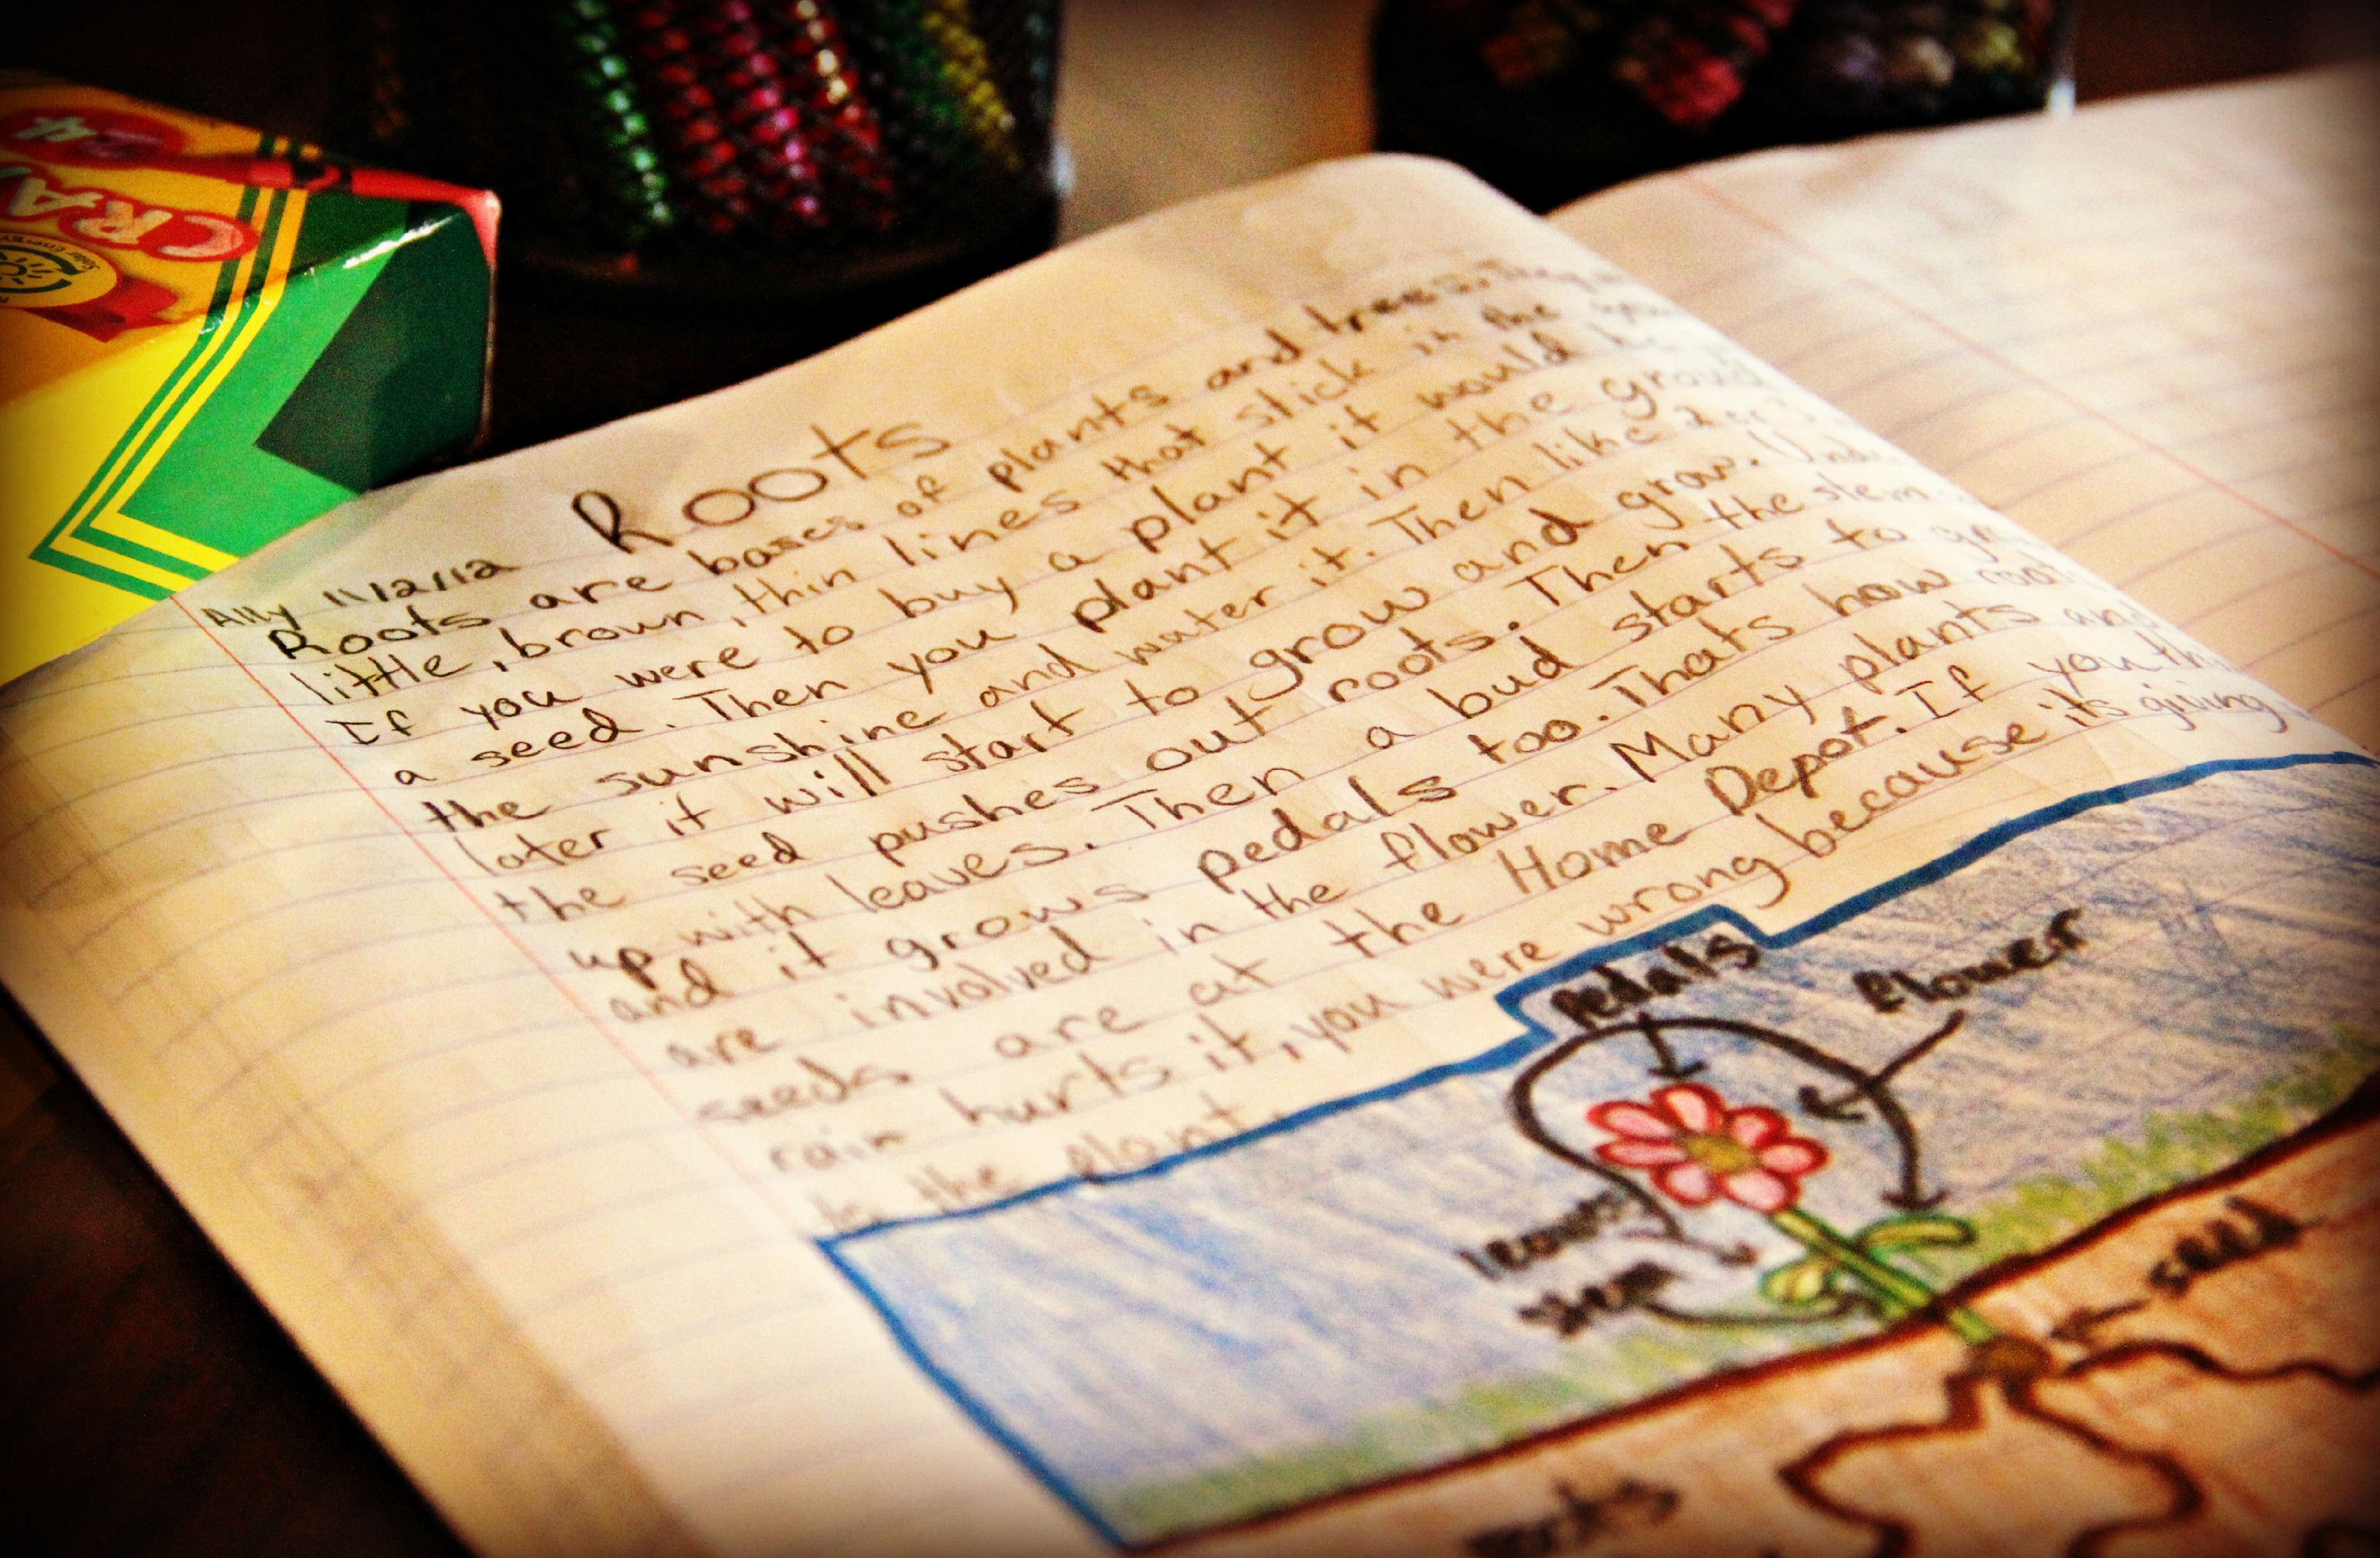 24
CRA
Solar Energy
Ally 11/12/12
Roots
Roots are bases of plants and trees. They
little, brown, thin lines that stick in the
If you were to buy a plant it would be
a seed. Then you plant it in the
the sunshine and water it. Then like 2 or 3
later it will start to grow and grow.
the seed pushes out roots. Then the stem
up with leaves. Then a bud starts to
and it grows pedals too. Thats how
are involved in the flower. Many plants and
seeds are at the Home Depot. If you
rain hurts it, you were wrong because its giving
to the plant.
pedals
flower
leaves
stem
seed
roots